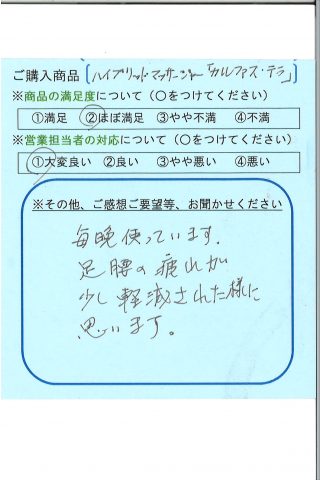 ご購入商品〔ハイブリッドマッサージャー「カルファス・テラ」〕
※商品の満足度について（○をつけてください）
①満足 ②ほぼ満足 ③やや不満 ④不満
※営業担当者の対応について（○をつけてください）
①大変良い ②良い ③やや悪い ④悪い
※その他、ご感想ご要望等、お聞かせください
毎晩使っています.
足腰の疲れが
少し軽減された様に
思います。